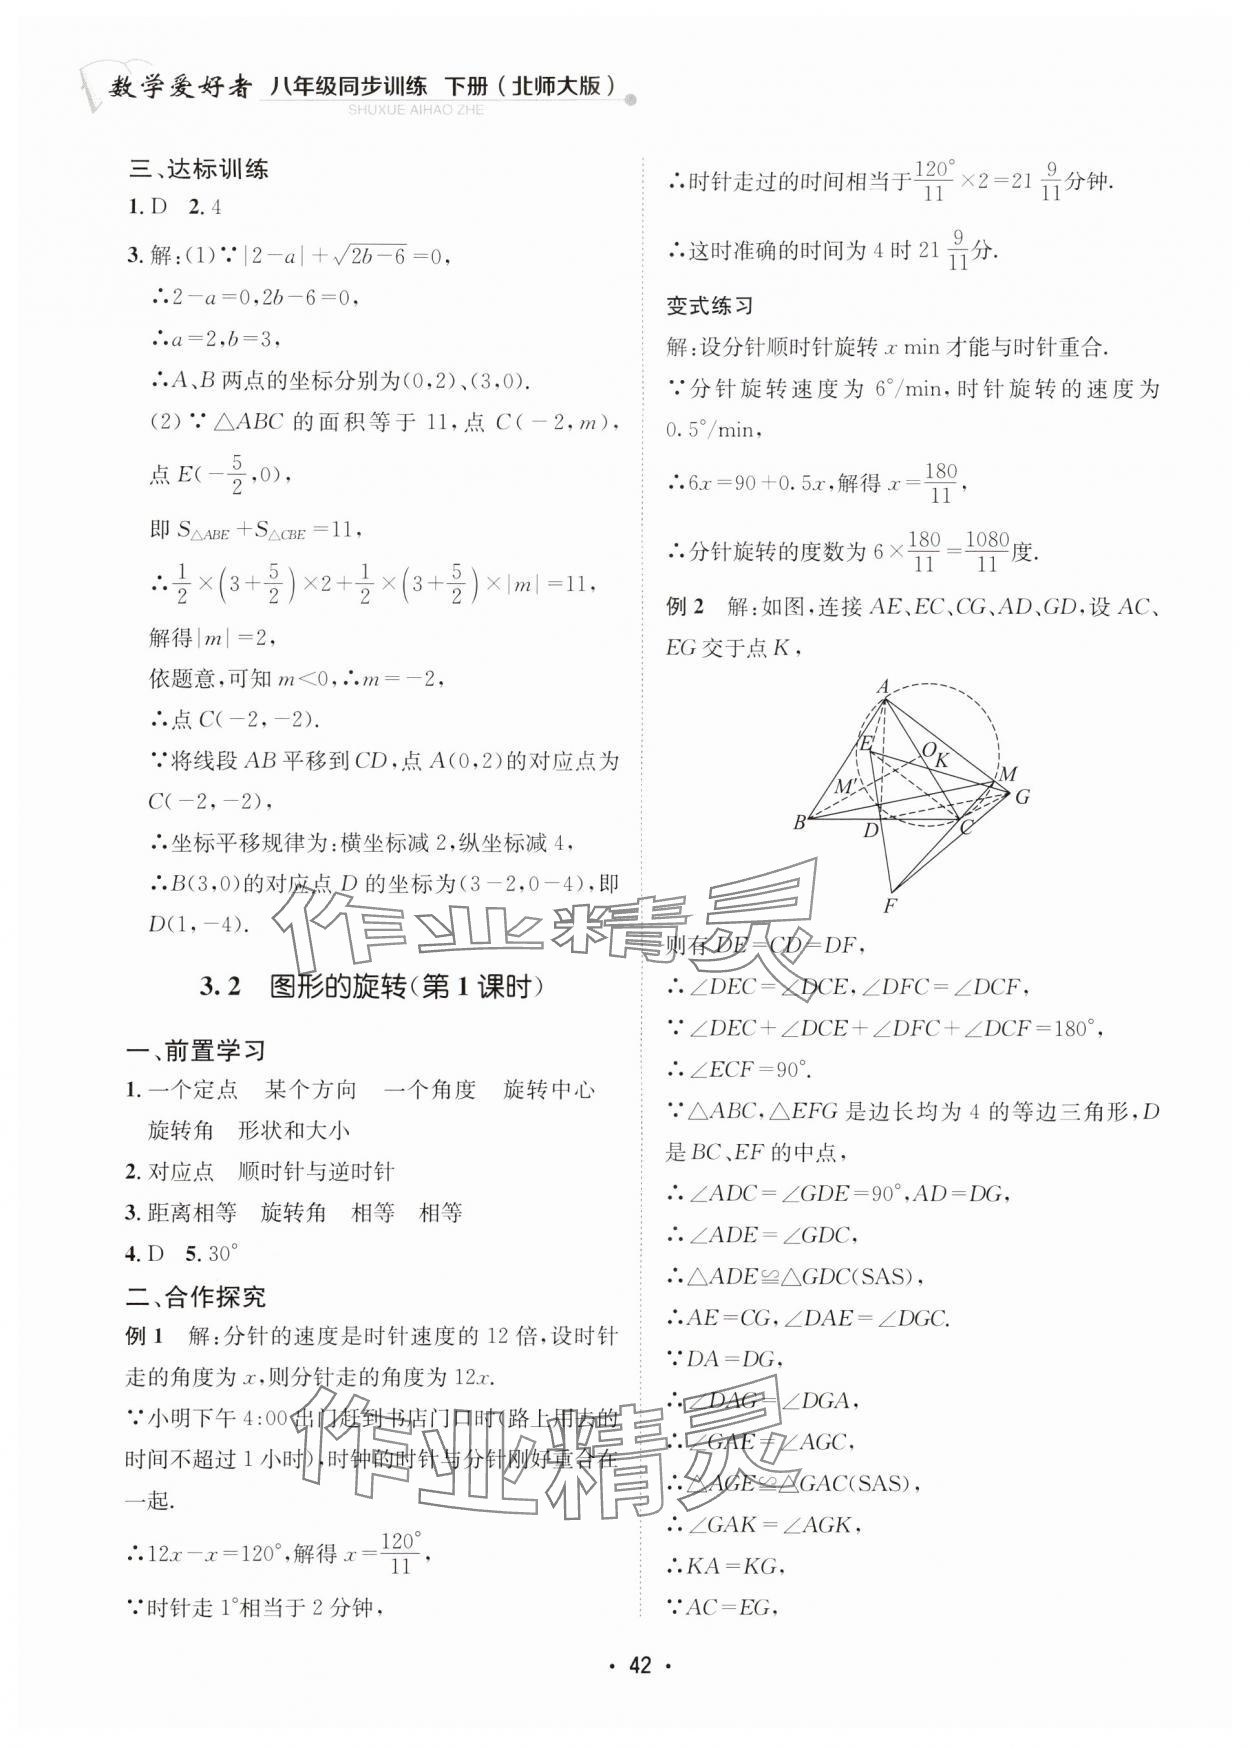 数学爱好者 八年级同步训练 下册（北师大版）
SHUXUE AIHAO ZHE
三、达标训练
1.D 2.4
3.解:(1)∵|2-a|+√(2b-6)=0,
∴2-a=0,2b-6=0,
∴a=2,b=3,
∴A、B两点的坐标分别为(0,2)、(3,0).
(2)∵△ABC 的面积等于 11,点 C(-2,m),
点 E(-5/2,0),
即 S△ABE+S△CBE=11,
∴1/2×(3+5/2)×2+1/2×(3+5/2)×|m|=11,
解得|m|=2,
依题意,可知 m<0,∴m=-2,
∴点C(-2,-2).
∵将线段 AB 平移到 CD,点 A(0,2)的对应点为
C(-2,-2),
∴坐标平移规律为:横坐标减 2,纵坐标减 4,
∴B(3,0)的对应点 D 的坐标为(3-2,0-4),即
D(1,-4).
3.2 图形的旋转(第1课时)
一、前置学习
1.一个定点 某个方向 一个角度 旋转中心
旋转角 形状和大小
2.对应点 顺时针与逆时针
3.距离相等 旋转角 相等 相等
4.D 5.30°
二、合作探究
例1 解:分针的速度是时针速度的 12 倍,设时针
走的角度为 x,则分针走的角度为 12x.
∵小明下午 4:00 出门赶到书店门口时(路上用去的
时间不超过 1 小时),时钟的时针与分针刚好重合在
一起.
∴12x-x=120°,解得 x=120°/11,
∵时针走 1°相当于 2 分钟,
∴时针走过的时间相当于120°/11×2=21 9/11分钟.
∴这时准确的时间为 4 时 21 9/11分.
变式练习
解:设分针顺时针旋转 x min 才能与时针重合.
∵分针旋转速度为 6°/min,时针旋转的速度为
0.5°/min,
∴6x=90+0.5x,解得 x=180/11,
∴分针旋转的度数为 6×180/11=1080/11度.
例2 解:如图,连接 AE、EC、CG、AD、GD,设 AC、
EG交于点K,
A
E
O
K
M
M′
G
B
D
C
F
则有 DE=CD=DF,
∴∠DEC=∠DCE,∠DFC=∠DCF,
∵∠DEC+∠DCE+∠DFC+∠DCF=180°,
∴∠ECF=90°.
∵△ABC,△EFG 是边长均为 4 的等边三角形,D
是 BC、EF 的中点,
∴∠ADC=∠GDE=90°,AD=DG,
∴∠ADE=∠GDC,
∴△ADE≌△GDC(SAS),
∴AE=CG,∠DAE=∠DGC.
∵DA=DG,
∴∠DAG=∠DGA,
∴∠GAE=∠AGC,
∴△AGE≌△GAC(SAS),
∴∠GAK=∠AGK,
∴KA=KG,
∵AC=EG,
作业精灵
作业精灵
· 42 ·